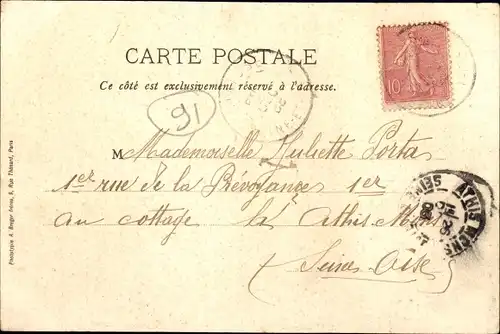 CARTE POSTALE
Ce côté est exclusivement réservé à l'adresse.
91
10
M Mademoiselle Juliette Porta
1er rue de la Prévoyance 1er
au cottage la Athis-Mons
(Seine-Oise)
ATHIS MONS
SEINE
Phototypie A. Breger Frères, 9, Rue Thénard, Paris